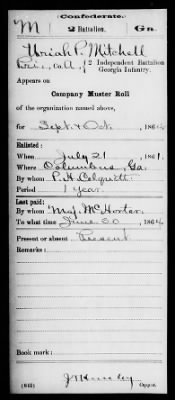 Confederate.
M 2 Battalion. Ga.
Uriah P. Mitchell
Priv, Co. A, 2 Independent Battalion
Georgia Infantry.
Appears on
Company Muster Roll
of the organization named above,
for Sept & Oct, 1864
Enlisted:
When July 21, 1861.
Where Columbus, Ga
By whom P. H. Colquitt
Period 1 year
Last paid:
By whom Maj. McHorter
To what time June 30, 1864
Present or absent Present
Remarks:
Book mark:
(642)
Copyist.